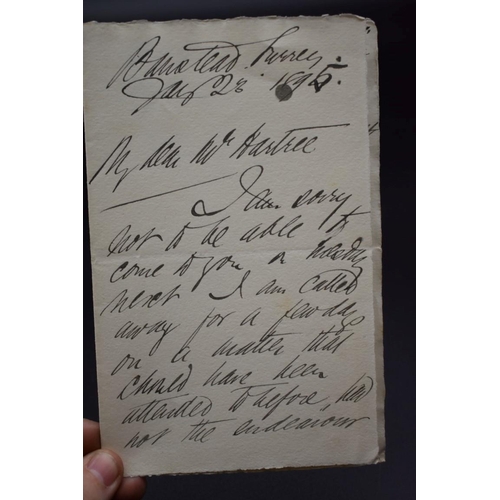 Banstead. Surrey.
Jany 28 1895.
My dear Mr Hartree
I am sorry
not to be able to
come to you on
next I am called
away for a few days
on a matter that
should have been
attended to before, had
not the endeavour